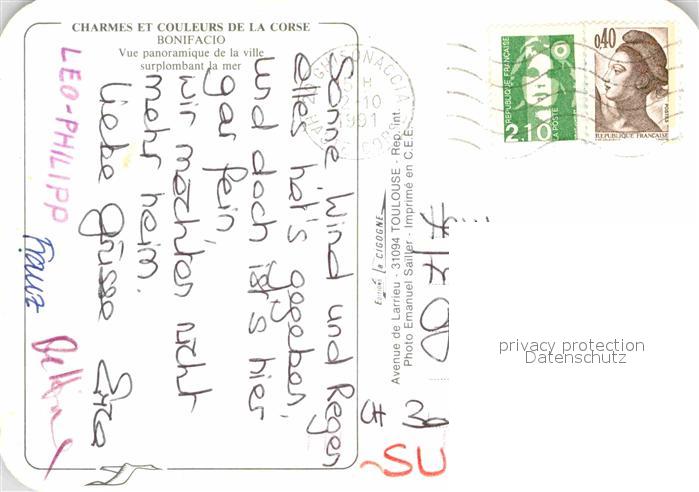 CHARMES ET COULEURS DE LA CORSE
BONIFACIO
Vue panoramique de la ville
surplombant la mer
Sonne, Wind und Regen
alles hat's gegeben,
und doch ist's hier
gar fein,
wir möchten nicht
mehr heim.
Liebe Grüsse
LEO-PHILIPP
Franz
GHISONACCIA
H
2-10
1991
HAUTE CORSE
REPUBLIQUE FRANÇAISE
2,10
LA POSTE
0,40
POSTES
REPUBLIQUE FRANÇAISE
Editions la CIGOGNE
Avenue de Larrieu - 31094 TOULOUSE - Rep. Int.
Photo Emanuel Sailler - Imprimé en C.E.E.
privacy protection
Datenschutz
~SU